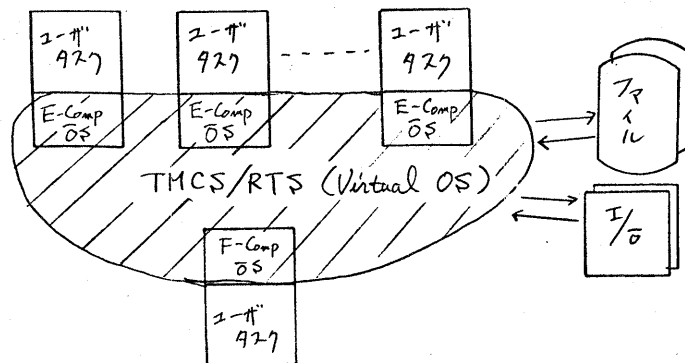 ユーザ
タスク
ユーザ
タスク
ユーザ
タスク
E-Comp
OS
E-Comp
OS
E-Comp
OS
ファイル
TMCS/RTS (Virtual OS)
I/O
F-Comp
OS
ユーザ
タスク